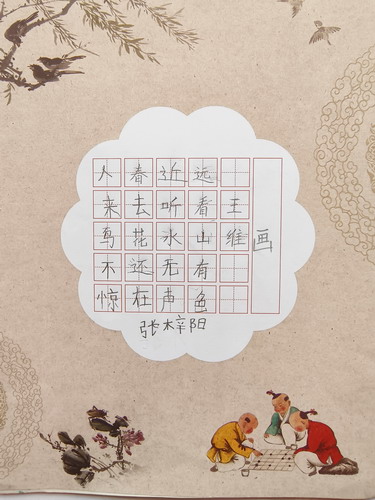 画
王维
远看山有色
近听水无声
春去花还在
人来鸟不惊
张梓阳